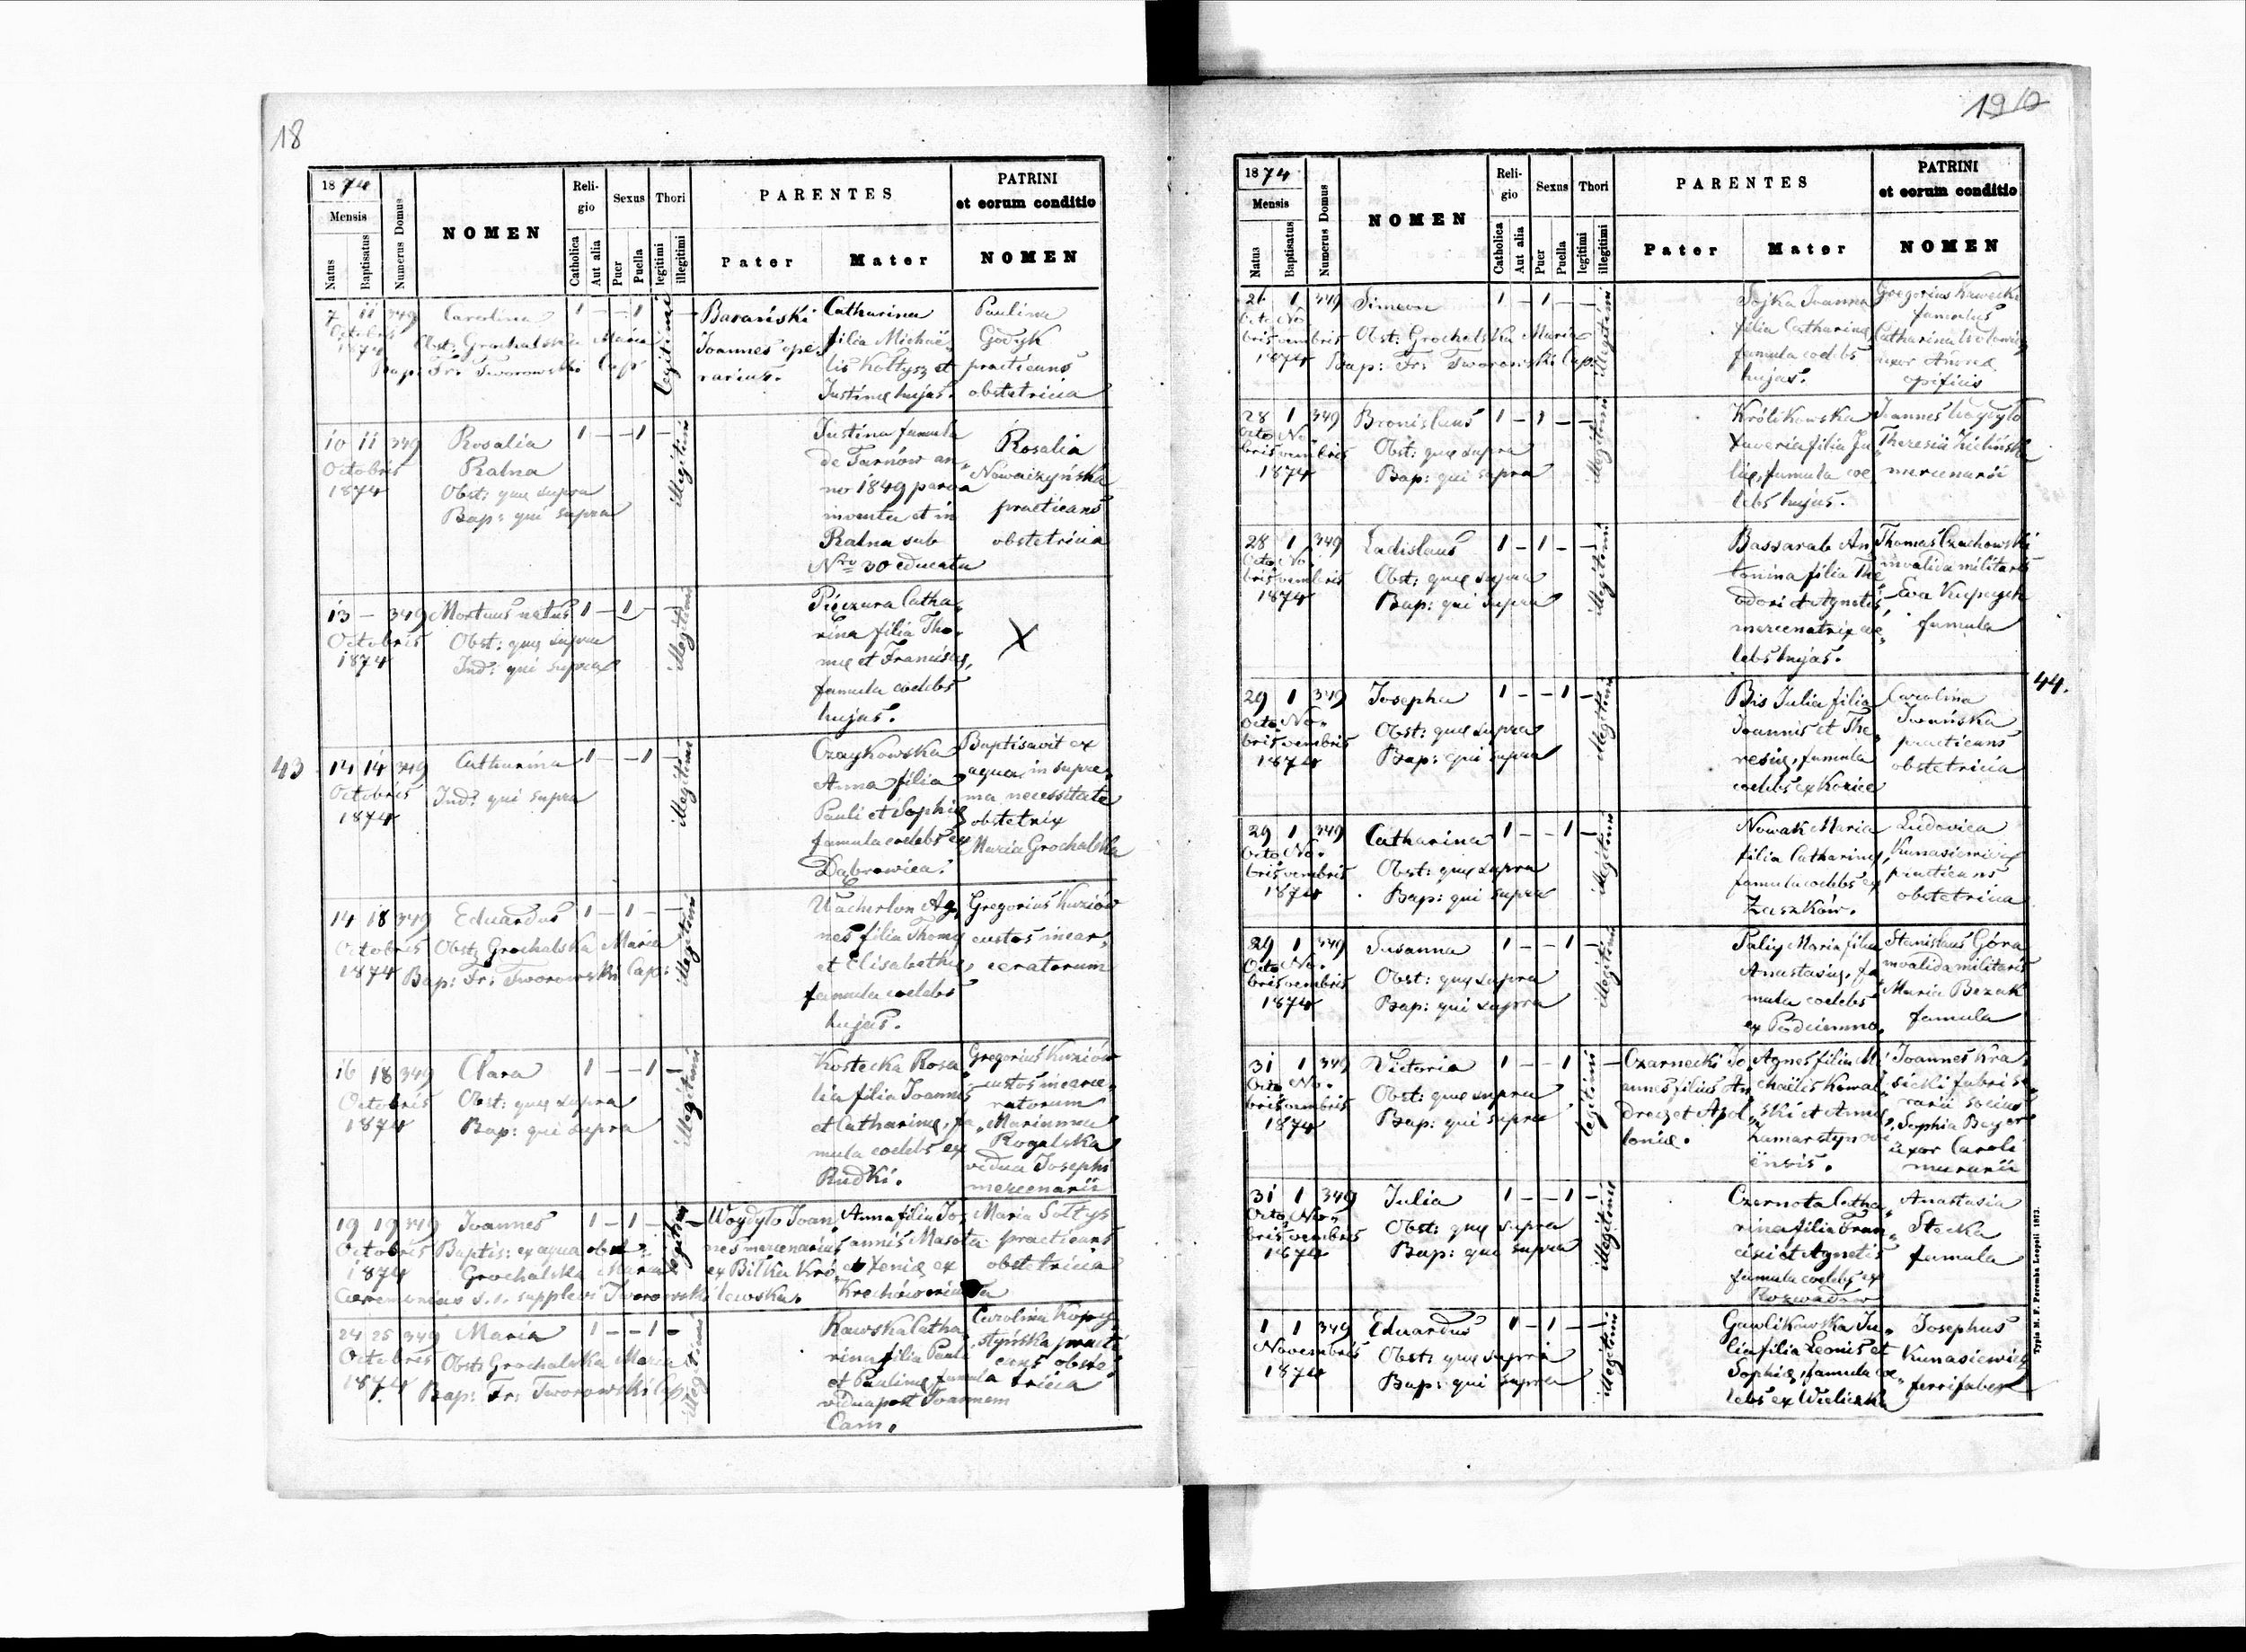 18
18 74
Mensis
Natus
Baptisatus
Numerus Domus
NOMEN
Reli-
gio
Catholica
Aut alia
Sexus
Puer
Puella
Thori
legitimi
illegitimi
PARENTES
Pater
Mater
PATRINI
et eorum conditio
NOMEN
7 11 349
Octobris
1874
Carolina
Obst: Grochalska Maria
Bap: Fr: Tworowski Cap:
1 – – 1 –
legitimi
Barański
Joannes ope,
rarius.
Catharina
filia Michaë,
lis Kołtysz et
Justinę hujas.
Paulina
Godyk
practicans
obstetricia
10 11 349
Octobris
1874
Rosalia
Ralna
Obst: quę supra
Bap: qui supra
1 – – 1 –
illegitimi
Justina famula
de Tarnów an,
no 1849 parva
inventa et in
Ralna sub
Nro 30 educata
Rosalia
practicans
obstetricia
13 – 349
Octobris
1874
Mortuus natus
Obst: quę supra
Ind: qui supra
1 – 1 –
illegitimi
Pieczura Catha,
rina filia Tho,
mę et Franciscę,
famula coelebs
hujas.
X
43
14 14 349
Octobris
1874
Catharina
Ind: qui supra
1 – – 1 –
illegitimi
Czaykowska
Anna filia
Pauli et Sophię
famula coelebs ex
Dąbrowica.
Baptisavit ex
aqua in supre,
ma necessitate
obstetrix
Maria Grochalska
14 18 349
Octobris
1874
Eduardus
Obst: Grochalska Maria
Bap: Fr: Tworowski Cap:
1 – 1 – –
illegitimi
Ag,
nes filia Thomę
et Elisabethę,
famula coelebs
hujas.
Gregorius Kuziów
custos incar,
ceratorum
16 18 349
Octobris
1874
Clara
Obst: quę supra
Bap: qui supra
1 – – 1 –
illegitimi
Kostecka Rosa
lia filia Joannis
et Catharinę, fa,
mula coelebs ex
Rudki.
Gregorius Kuziów
custos incarce,
ratorum
Marianna
Rogalska
vidua Josephi
mercenarii
19 19 349
Octobris
1874
Joannes
Baptis: ex aqua obst:
Grochalska Maria
Ceremonias s. s. supplevi Tworowski
1 – 1 –
legitimi
Woydyło Joan,
nes mercenarius
ex Biłka Kró,
lewska.
Anna filia Jo,
annis Masota
et Xenię ex
Maria Sołtys
practicans
obstetricia
24 25 349
Octobris
1874
Maria
Obst: Grochalska Maria
Bap: Fr: Tworowski Cap:
1 – – 1 –
illegitimi
Rawska Catha
rina filia Pauli
et Paulinę, famula
vidua post Joannem
Cam.
Carolina
practi
cans obste
tricia
19
18 74
Mensis
Natus
Baptisatus
Numerus Domus
NOMEN
Reli-
gio
Catholica
Aut alia
Sexus
Puer
Puella
Thori
legitimi
illegitimi
PARENTES
Pater
Mater
PATRINI
et eorum conditio
NOMEN
26 1 349
Octo No
bris vembris
1874
Simeon
Obst: Grochalska Maria
Bap: Fr: Tworowski Cap:
1 – 1 – –
illegitimi
Sojka Joanna
filia Catharinę
famula coelebs
hujas.
Gregorius Kawecki
famulus
Catharina
uxor Andreę
opificis
28 1 349
Octo No
bris vembris
1874
Bronislaus
Obst: quę supra
Bap: qui supra
1 – 1 – –
illegitimi
Królikowska
Xaveria filia Ju
lię, famula coe
lebs hujas.
Joannes Woydyło
Theresia Zielińska
mercenarii
28 1 349
Octo No
bris vembris
1874
Ladislaus
Obst: quę supra
Bap: qui supra
1 – 1 – –
illegitimi
Bassarab An
tonina filia The
odori et Agnetis,
mercenatrix coe,
lebs hujas.
Thomas Czachowski
invalida militaris
Eva
famula
44.
29 1 349
Octo No.
bris vembris
1874
Josepha
Obst: quę supra
Bap: qui supra
1 – – 1 –
illegitimi
Bis Julia filia
Joannis et The,
resię, famula
coelebs ex Kozice
Carolina
Iwańska
practicans
obstetricia
29 1 349
Octo No.
bris vembris
1874
Catharina
Obst: quę supra
Bap: qui supra
1 – – 1 –
illegitimi
Nowak Maria
filia Catharinę,
famula coelebs ex
Zaszków.
Ludovica
Kunasiewicz
practicans
obstetricia
29 1 349
Octo No.
bris vembris
1874
Susanna
Obst: quę supra
Bap: qui supra
1 – – 1 –
illegitimi
Paliy Maria filia
Anastasię, fa
mula coelebs
ex Podciemno.
Stanislaus Góra
invalida militaris
Maria Bezak
famula
31 1 349
Octo No.
bris vembris
1874
Victoria
Obst: quę supra
Bap: qui supra
1 – – 1 –
legitimi
Czarnecki Jo,
annes filius An
dreę et Apol,
lonię.
Agnes filia Mi
chaëlis Kowal,
ski et Annę
Zamarstynovi
ensis.
Joannes Kra,
sicki fabri
rarii socius
Sophia Beyer
uxor Caroli
murarii
31 1 349
Octo No.
bris vembris
1874
Julia
Obst: quę supra
Bap: qui supra
1 – – 1 –
illegitimi
Czernota Catha,
rina filia Fran,
cisci et Agnetis
famula coelebs ex
Rozwadów
Anastasia
Stecka
famula
1 1 349
Novembris
1874
Eduardus
Obst: quę supra
Bap: qui supra
1 – 1 – –
illegitimi
Gawlikowska Ju,
lia filia Leonis et
Sophię, famula coe,
lebs ex Wieliczka
Josephus
Kunasiewicz
ferrifaber
Typis M. F. Poremba Leopoli 1873.